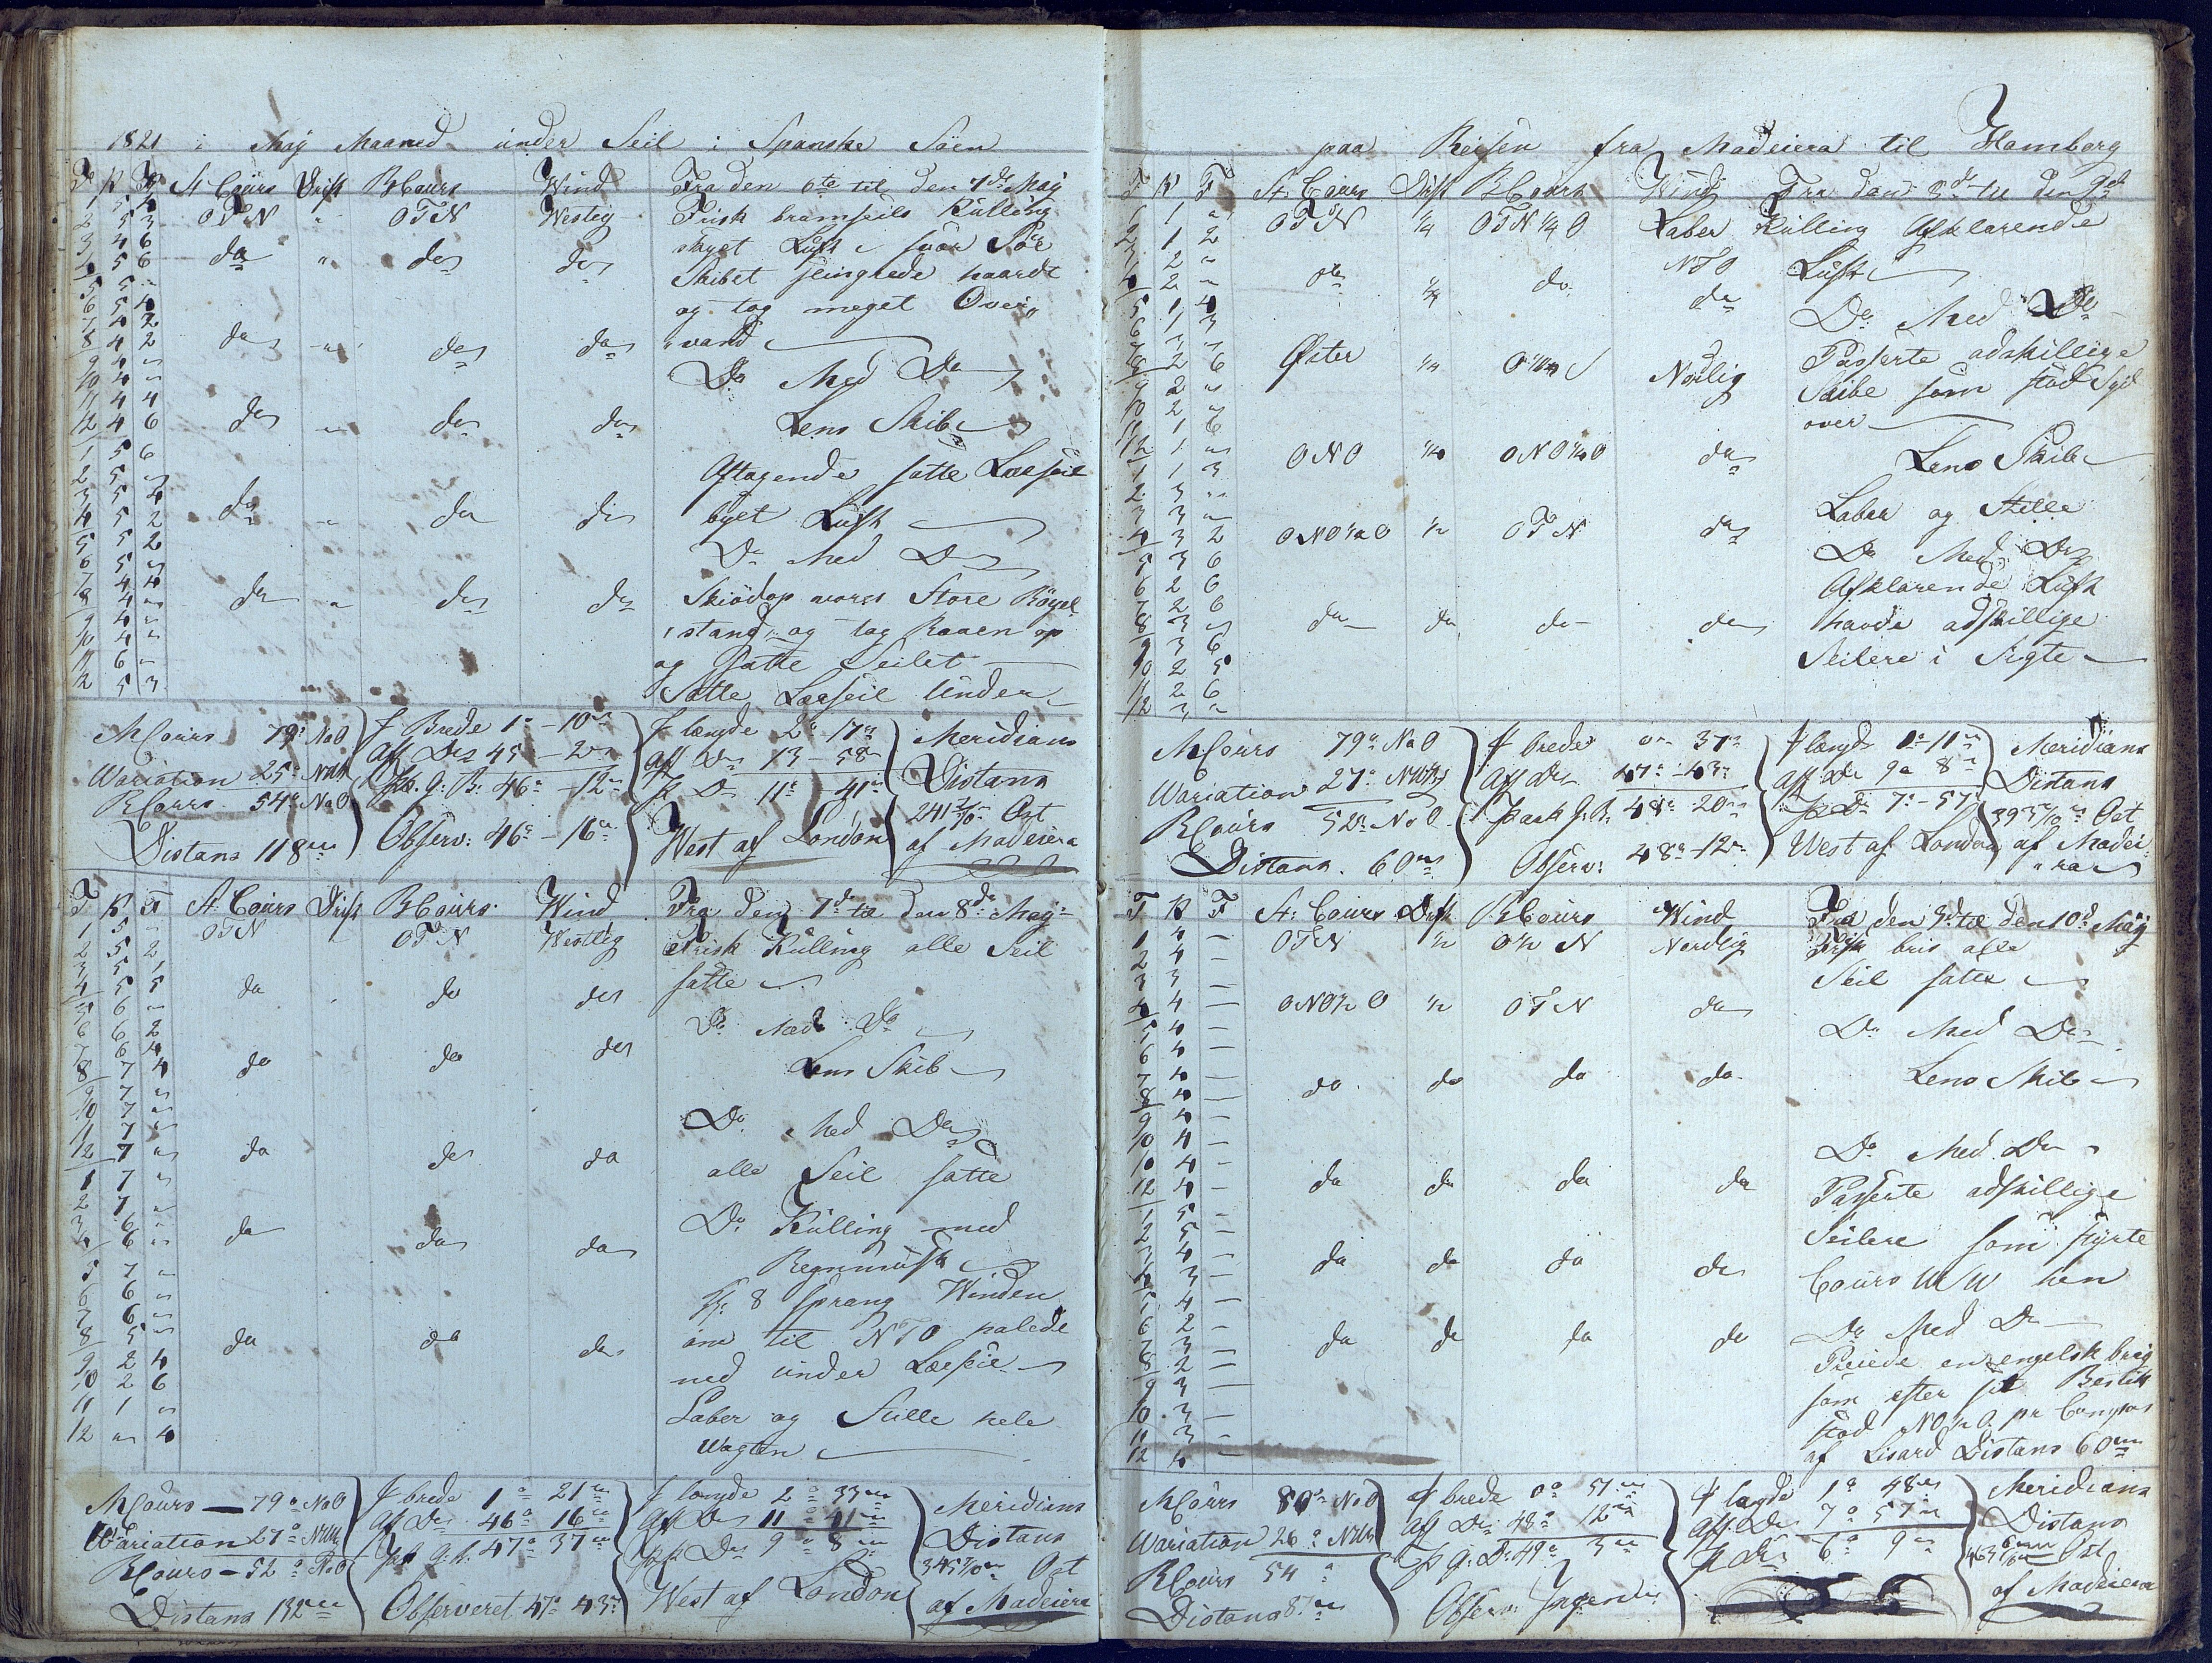 1821 i May Maaned under Seil i Spanske Söen
T K F St: Cours Drift B Cours Wind Fra den 6te til den 7de May
1 5 4 OTN " OTN Westlig Frisk bramseils Kulling
2 5 3 skyet Luft svær Söe
3 4 6 do " do do Skibet slingrede haardt
4 5 6 og tog meget Over„
5 5 " „vand
6 5 4
7 4 2
8 4 2 do " do do Do Med Do
9 4 "
10 4 "
11 4 4
12 4 6 do " do do Lens Skib
1 5 6
2 5 " Aftagende satte Læseil
3 5 4
4 5 2 do " do do bylt Luft
5 5 2
6 5 " Do Med Do
7 4 4
8 4 " do " do do Skiödop vores Store Böyel
9 4 " stand, og tog Raaen op
10 4 "
11 6 " og satte Seilet
12 5 3 Satte Læseil Under
M Cours 79° NaO
Wariation 25° NW
B Cours 54° NaO
Distans 118 m
f Brede 1° - 10 m
aff Do 45 - 2 m
Paa. g: B: 46° - 12 m
Observ: 46° - 16 m
f længde 2° - 17 m
aff Do 13 - 58 m
P Do 11° - 41 m
West af London
Meridians
Distans
241 2/10 m Ost
af Madeiera
T K F St Cours Drift B Cours Wind Fra den 7de til den 8de May
1 5 " OTN OTN Westlig Frisk Kulling alle Seil
2 5 2 satte
3 5 1
4 5 5 do do do
5 6 "
6 6 2 Do Med Do
7 6 4
8 7 4 do do do Lens Skib
9 7 "
10 7 "
11 7 " Do Med Do
12 7 " do do do
1 7 " alle Seil satte
2 7 "
3 6 " Do Kulling med
4 6 " do do do Regnmusk
5 7 "
6 6 " Kl: 8 sprang Winden
7 6 " om til NTO halede
8 5 " do do do
9 2 4 ned under Læseil
10 2 6
11 1 " Laber og Stille hele
12 " 4 Wagten
M Cours - 79° NaO
Wariation 27° NW
B Cours - 52° NaO
Distans 132 m
f brede 1° 21 m
af Do 46° 16 m
Paf g: b: 47° 37 m
Observeret 47° 43 m
f længde 2° 33 m
Aff Do 11° 41 m
Paf Do 9° 8 m
West af London
Meridians
Distans
345 7/10 m Ost
af Madeiera
paa Reisen fra Madeiera til Hamborg
T K F St: Cours Drift B Cours Wind Fra den 8de til den 9de
1 1 " OTN 1/4 OTN 1/4 O Laber Kulling Afklarende
2 1 2 NTO Luft
3 2 "
4 2 " do 1/4 do do
5 1 4 Do Med Do
6 1 3
7 1 " Passerte adskillige
8 2 6 Öster 1/4 O 1/4 S Norlig Skibe som stod Syd
9 2 "
10 2 " over
11 1 6
12 1 " ONO 1/4 ONO 1/4 O do Lens Skib
1 1 3
2 3 " Laber og Stille
3 3 "
4 3 2 ONO 1/2 O 1/2 OTN do Do Med Do
5 3 6
6 2 6 Afklarende Luft
7 2 6
8 3 " do do do do havde adskillige
9 3 6
10 2 5 Seilere i Sigte
11 2 6
12 3 "
M Cours 79° NaO
Wariation 27° NW
B Cours 52° NaO
Distans. 60 m
f brede 0° 37 m
aff Do 47° 43 m
Paak g: B: 48° 20 m
Observ: 48° 12 m
f længde 1° 11 m
aff Do 9° 8 m
P Do 7° - 57 m
West af London
Meridians
Distans
393 5/10 m Ost
af Madei
„ra
T K F St: Cours Drift B Cours Wind Fra den 9de til den 10de May
1 4 - OTN 1/2 O 1/2 N Nordlig Frisk bris alle
2 4 -
3 3 - Seil satte
4 4 - ONO 1/2 O 1/2 OTN do
5 4 - Do Med Do
6 4 -
7 4 -
8 4 - do do do do Lens Skib
9 4 -
10 4 - Do Med Do
10 4 -
12 4 - do do do do Passerte adskillige
1 5 -
2 5 - Seilere som styrte
3 4 -
4 3 - do do do do Cours W hen
5 4 -
6 2 - Do Med Do
7 3 -
8 2 - do do do do Preiede en engelsk brig
9 3 - som efter sit Bestik
10 3 - stod NO 1/2 O pr Compas
11 3 -
12 4 - af Lisard Distans 60 m
M Cours 80° NaO
Wariation 26° NW
B Cours 54°
Distans 87 m
f brede 0° 51 m
aff Do 48° 12 m
P g: B: 49° 3 m
Observ: Ingen
f lægde 1° 48 m
aff Do 7° 57 m
P Do 6° 9 m
Meridians
Distans
463 6/10 m Ost
af Madeiera